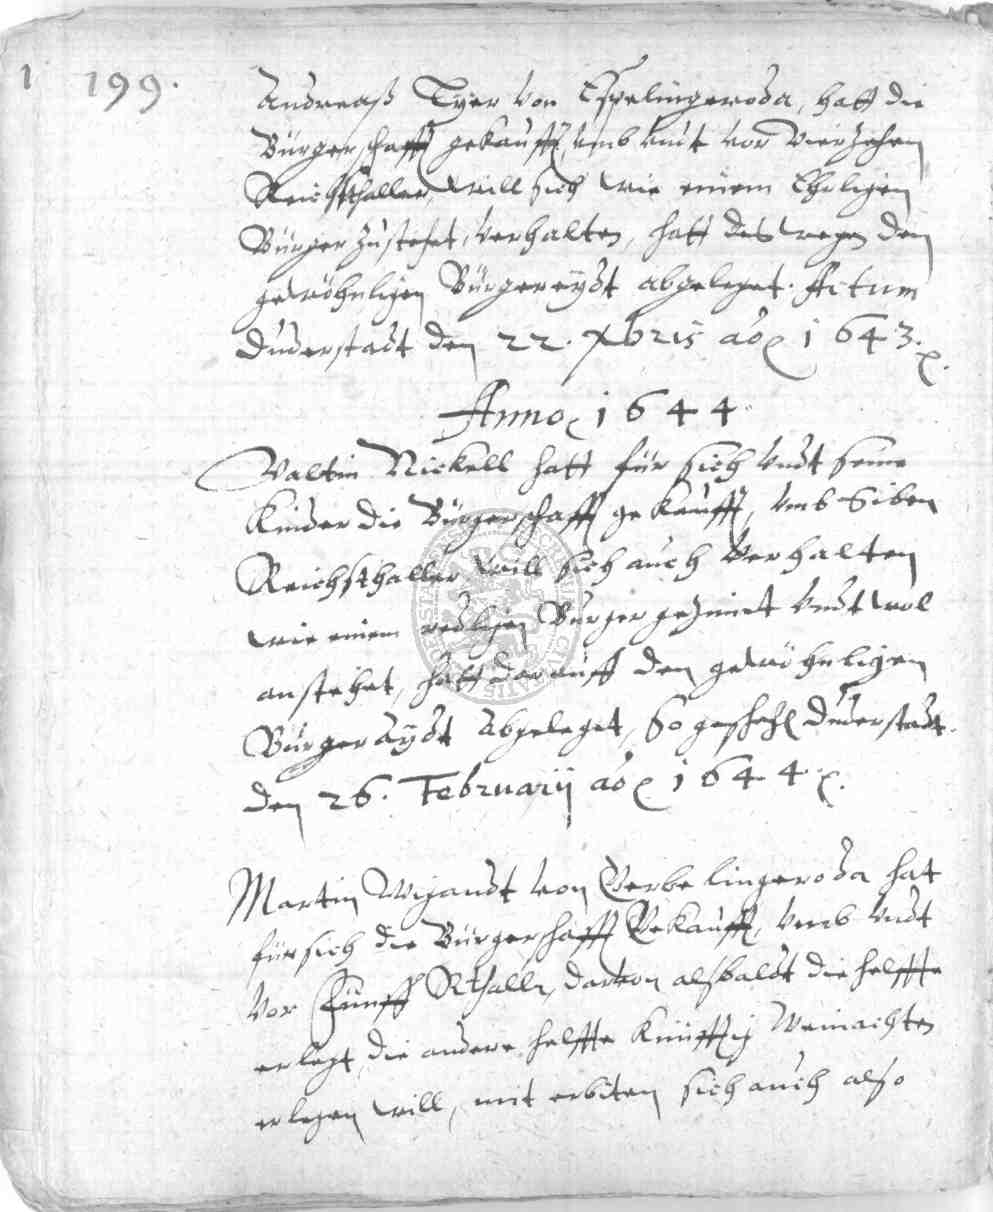 1 199.
Andreaß Tyer von Espelingeroda, hatt die
Bürgerschafft gekaufft, umb undt vor vierzehen
Reichsthaller, will sich wie einem Ehrligen
Bürger zustehet, verhalten, hatt deswegen den
gewöhnligen Bürgereydt abgeleget. Actum
Duderstadt den 22. Xbris ao 1643.
Anno 1644
Valtin Nickell hatt für sich undt seine
Kinder die Bürgerschafft gekaufft, umb Siben
Reichsthaller will sich auch verhalten
wie einem redligen Bürger gezimet undt wol
anstehet, hatt darauff den gewöhnligen
Bürgeraydt abgeleget, So geschehen Duderstadt
den 26. Februarij ao 1644.
Martin Wigandt von Gerbelingeroda hat
für sich die Bürgerschafft Gekaufft, umb undt
vor Funff Rthalle, darvon alsbaldt die helffte
erlegt, die andere helffte Künfftig Weinachten
erlegen will, mit erbiten sich auch also